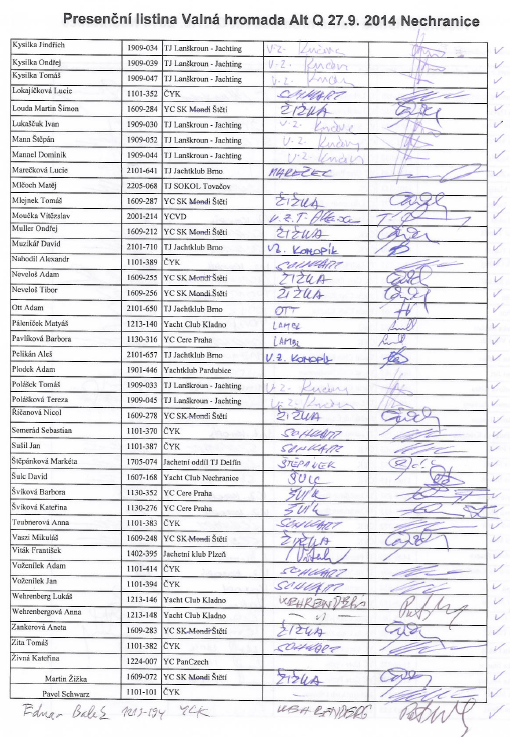 Presenční listina Valná hromada Alt Q 27.9. 2014 Nechranice
Kysilka Jindřich 1909-034 TJ Lanškroun - Jachting v.z.
Kysilka Ondřej 1909-039 TJ Lanškroun - Jachting v.z.
Kysilka Tomáš 1909-047 TJ Lanškroun - Jachting v.z.
Lokajíčková Lucie 1101-352 ČYK
Louda Martin Šimon 1609-284 YC SK Mondi Štětí ŽIŽKA
Lukaščuk Ivan 1909-030 TJ Lanškroun - Jachting v.z.
Mann Štěpán 1909-052 TJ Lanškroun - Jachting v.z.
Mannel Dominik 1909-044 TJ Lanškroun - Jachting v.z.
Marečková Lucie 2101-641 TJ Jachtklub Brno MAREČEK
Mlčoch Matěj 2205-068 TJ SOKOL Tovačov
Mlejnek Tomáš 1609-287 YC SK Mondi Štětí ŽIŽKA
Moučka Vítězslav 2001-214 YCVD
Muller Ondřej 1609-212 YC SK Mondi Štětí ŽIŽKA
Muzikář David 2101-710 TJ Jachtklub Brno VZ. KONOPÍK
Nahodil Alexandr 1101-389 ČYK
Neveloš Adam 1609-255 YC SK Mondi Štětí ŽIŽKA
Neveloš Tibor 1609-256 YC SK Mondi Štětí ŽIŽKA
Ott Adam 2101-650 TJ Jachtklub Brno OTT
Páleníček Matyáš 1213-140 Yacht Club Kladno
Pavlíková Barbora 1130-316 YC Cere Praha
Pelikán Aleš 2101-657 TJ Jachtklub Brno V.Z. KONOPÍK
Plodek Adam 1901-446 Yachtklub Pardubice
Polášek Tomáš 1909-033 TJ Lanškroun - Jachting v.z.
Polášková Tereza 1909-045 TJ Lanškroun - Jachting v.z.
Říčanová Nicol 1609-278 YC SK Mondi Štětí ŽIŽKA
Semerád Sebastian 1101-370 ČYK
Sušil Jan 1101-387 ČYK
Štěpánková Markéta 1705-074 Jachetní oddíl TJ Delfín ŠTĚPÁNEK
Šulc David 1607-168 Yacht Club Nechranice ŠULC
Švíková Barbora 1130-352 YC Cere Praha ŠVÍK
Švíková Kateřina 1130-276 YC Cere Praha ŠVÍK
Teubnerová Anna 1101-383 ČYK
Vaszi Mikuláš 1609-248 YC SK Mondi Štětí ŽIŽKA
Viták František 1402-395 Jachetní klub Plzeň Viták
Voženílek Adam 1101-414 ČYK
Voženílek Jan 1101-394 ČYK
Wehrenberg Lukáš 1213-146 Yacht Club Kladno WEHRENBERG
Wehrenbergová Anna 1213-148 Yacht Club Kladno
Zankerová Aneta 1609-283 YC SK Mondi Štětí ŽIŽKA
Zita Tomáš 1101-382 ČYK
Živná Kateřina 1224-007 YC PanCzech
Martin Žižka 1609-072 YC SK Mondi Štětí ŽIŽKA
Pavel Schwarz 1101-101 ČYK
WEHRENBERG